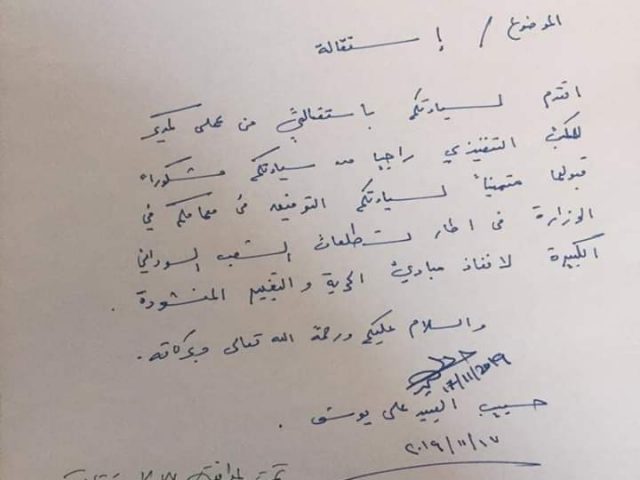 الموضوع / إستقالة
اتقدم لسيادتكم باستقالتي من عملى كمدير
للمكتب التنفيذي راجيا من سيادتكم مشكوراً
قبولها متمنياً لسيادتكم التوفيق في مهامكم في
الوزارة في اطار تطلعات الشعب السوداني
الكبيرة لانفاذ مبادئ الحرية و التغيير المنشودة .
والسلام عليكم ورحمة الله تعالى وبركاته .
١٧/١١/٢٠١٩
حسيب السيد على يوسف .
٢٠١٩/١١/١٧